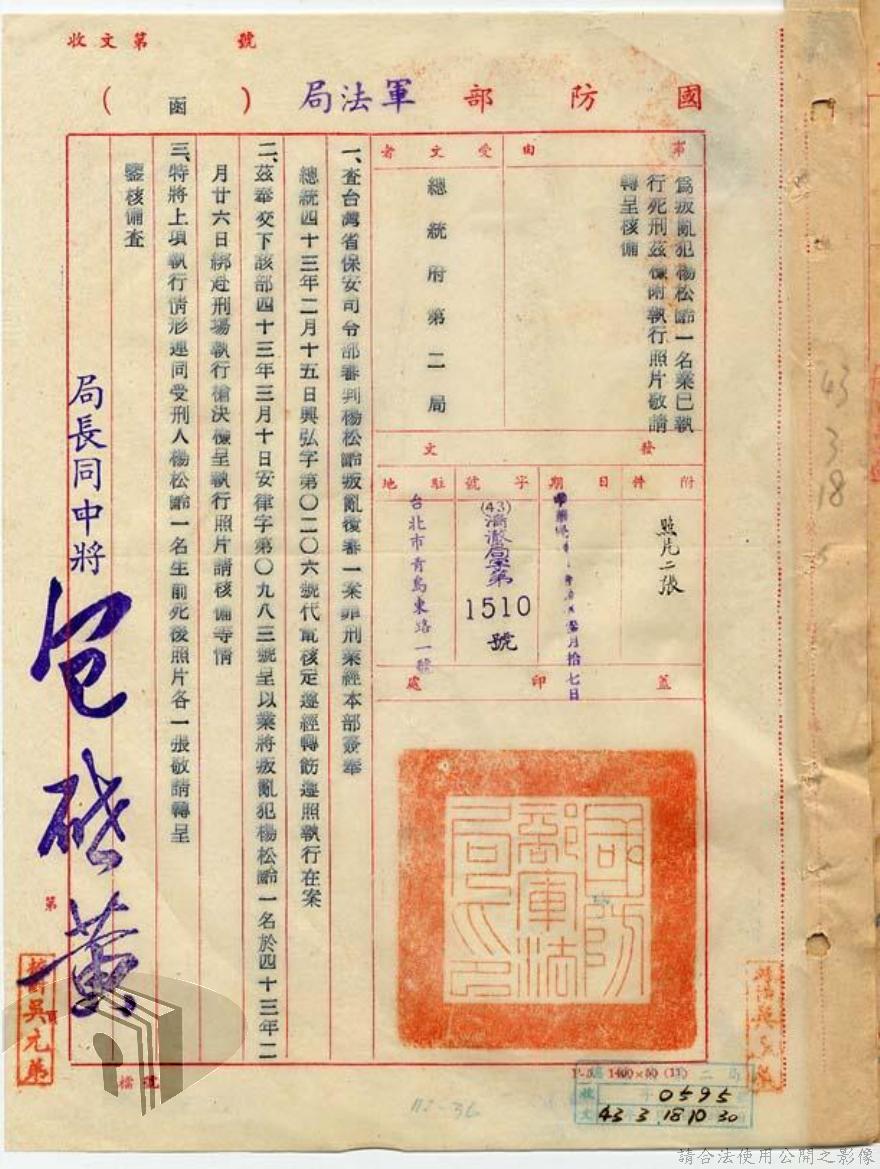 收文第　　號
國防部軍法局（函）
事由
為叛亂犯楊松齡一名業已執
行死刑茲檢附執行照片敬請
轉呈核備
受文者
總統府第二局
發文
附件
照片二張
日期
月拾七日
字號
(43)
1510
號
駐地
台北市青島東路一號
蓋印處
國防部軍法局印
一、查台灣省保安司令部審判楊松齡叛亂復審一案罪刑業經本部簽奉
總統四十三年二月十五日興弘字第〇二〇六號代電核定遵經轉飭遵照執行在案
二、茲奉交下該部四十三年三月十日安律字第〇九八三號呈以業將叛亂犯楊松齡一名於四十三年二
月廿六日綁赴刑場執行槍決檢呈執行照片請核備等情
三、特將上項執行情形連同受刑人楊松齡一名生前死後照片各一張敬請轉呈
鑒核備查
局長同中將
包啟黃
第
號檔
吳元弟
1400×50 (11)
收文
0595
43 3 18 10 30
112-36
43
3
18
請合法使用公開之影像